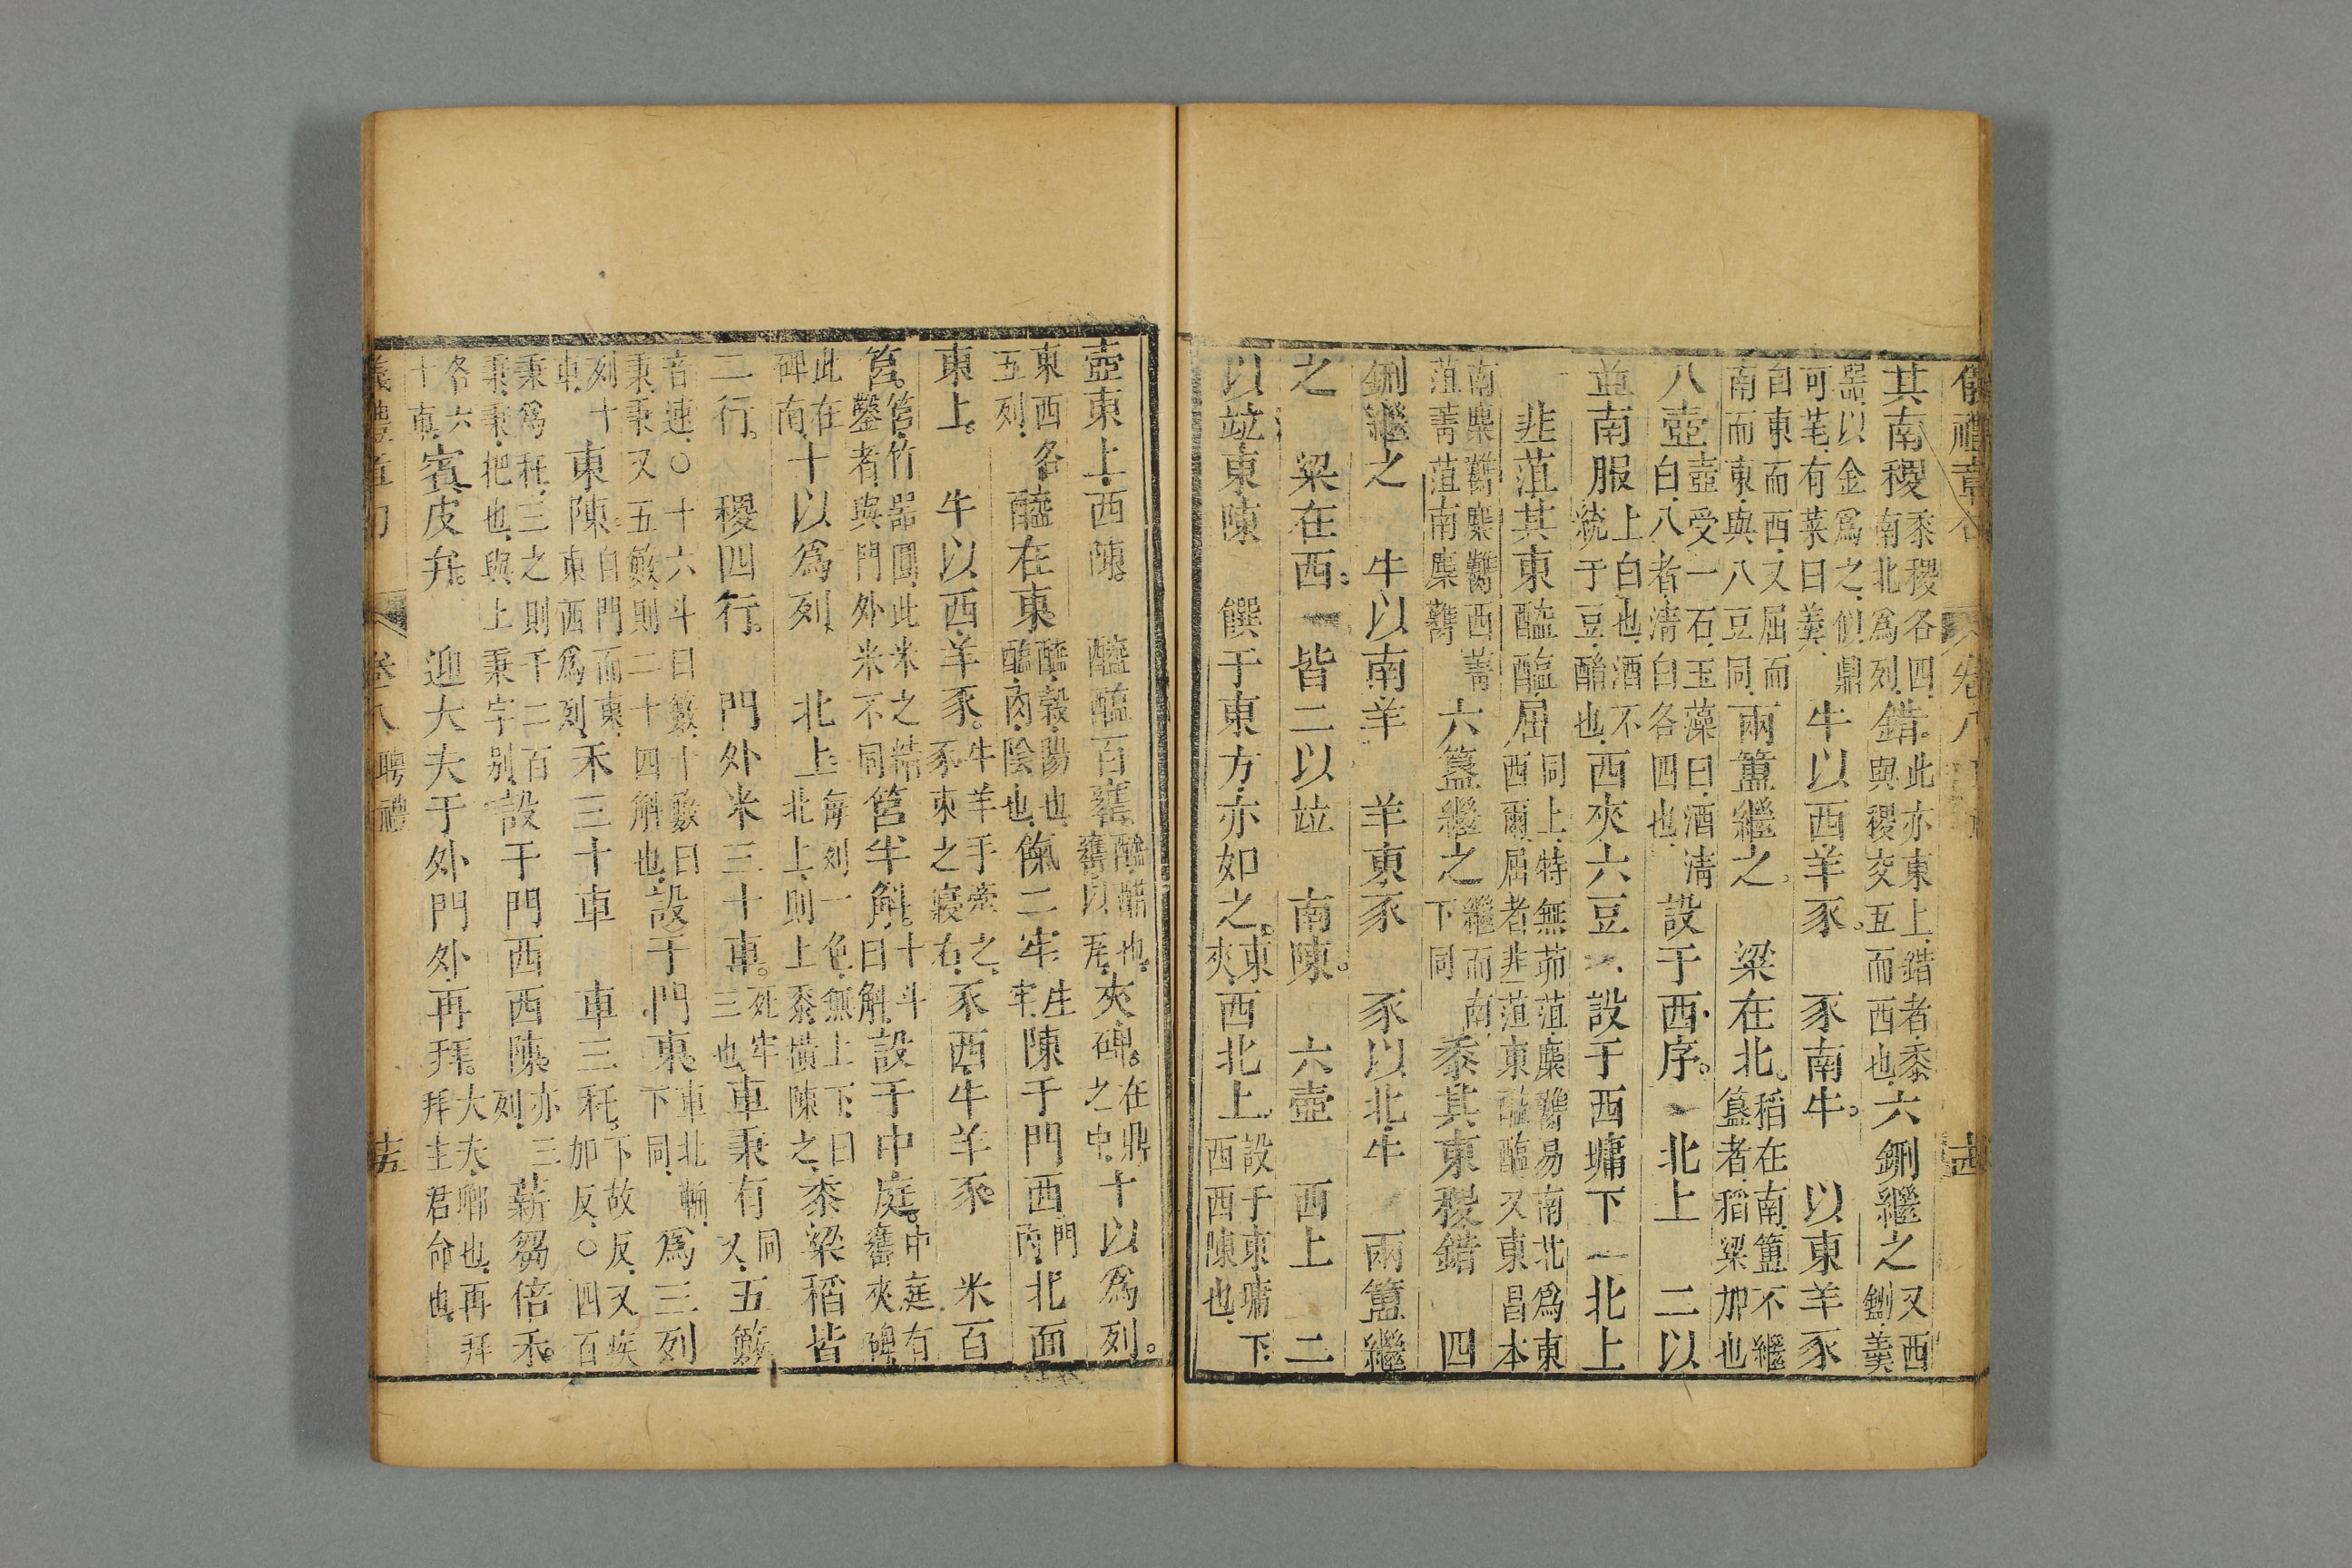 儀禮章句 卷八 聘禮 十四
其南稷黍稷各四南北爲列錯此亦東上錯者黍與稷交互而西也六鉶繼之又西鉶羹
器以金爲之侧鼎可芼有菜曰羹牛以西羊豕 豕南牛 以東羊豕
自東而西又屈而南而東與八豆同兩簠繼之 梁在北稻在南簠不繼簋者稻粱加也
八壺壺受一石玉藻曰酒清白八者清白各四也設于西序 北上 二以
並南服上白也酒不統于豆醯也西夾六豆 設于西墉下 北上
韭菹其東醓醢屈同上特無茆菹麋臡易南北爲東西爾屈者韭菹東醓醢又東昌本
南麋臡麋臡西菁菹菁菹南麋臡六簋繼之繼而南下同黍其東稷錯 四
鉶繼之 牛以南羊 羊東豕 豕以北牛 兩簠繼
之 梁在西 皆二以竝 南陳 六壺 西上 二
以竝東陳 饌于東方亦如之東夾西北上設于東墉下西西陳也
壺東上西陳 醓醢百罋醓醋也罋以瓦夾碑在鼎之中十以爲列
東西各五列醯在東醯穀陽也醢肉陰也餼二牢生牢陳于門西門內北面
東上 牛以西羊豕牛羊手牽之豕束之寢右豕西牛羊豕 米百
筥筥竹器圓此米之精鑿者與門外米不同筥半斛十斗曰斛設于中庭中庭有罋夾碑
此在碑南十以爲列 北上每列一色無上下曰北上則上黍橫陳之黍梁稻皆
二行 稷四行 門外米三十車死牢三也車秉有同又五籔
音速○十六斗曰籔十籔曰秉秉又五籔則二十四斛也設于門東車北輈下同爲三列
列十車東陳自門而東東西爲列禾三十車 車三秅下故反又疾加反○四百
秉爲秅三之則千二百秉秉把也與上秉字别設于門西西陳亦三列薪芻倍禾
各六十車賓皮弁 迎大夫于外門外再拜大夫卿也再拜拜主君命也
儀禮章句 卷八 聘禮 十五